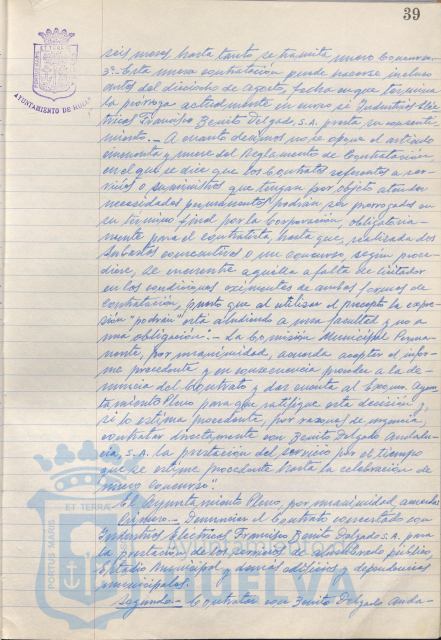 39
AYUNTAMIENTO DE HUELVA
seis meses, hasta tanto se tramita nuevo Concurso.
3º.- Esta nueva contratación puede hacerse incluso
antes del dieciocho de Agosto, fecha en que termina
la prórroga actualmente en curso, si "Industrias Eléc-
tricas Francisco Benito Delgado, S.A. presta su consenti-
miento.- A cuanto decimos, no se opone el artículo
cincuenta y nueve del Reglamento de Contratación
en el que se dice que los Contratos referentes a ser-
vicios o suministros que tengan por objeto atender
necesidades permanentes podrán ser prorrogados en
su término final por la Corporación, obligatoria-
mente para el contratista, hasta que, realizada dos
subastas consecutivas o un concurso, según proce-
diere, se encuentre aquella a falta de licitador
en las condiciones exigentes de ambas formas de
contratación, puesto que al utilizar el precepto la expre-
sión "podrán" está aludiendo a una facultad y no a
una obligación.- La Comisión Municipal Perma-
nente, por unanimidad, acuerda aceptar el infor-
me precedente y en consecuencia proceder a la de-
nuncia del Contrato y dar cuenta al Excmo. Ayun-
tamiento Pleno para que ratifique esta decisión y,
si lo estima procedente, por razones de urgencia,
contratar directamente con Benito Delgado Andalu-
cía, S.A. la prestación del servicio por el tiempo
que se estime procedente hasta la celebración de
nuevo concurso".
El Ayuntamiento Pleno, por unanimidad acuerda:
Primero.- Denunciar el Contrato concertado con
"Industrias Eléctricas Francisco Benito Delgado S.A. para
la prestación de los servicios de alumbrado público,
Estadio Municipal y demás edificios y dependencias
municipales.
Segundo.- Contratar con Benito Delgado Anda-
ET TERRAE
PORTUS MARIS
HUELVA